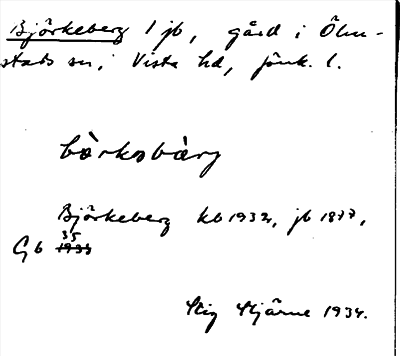 Björkeberg 1 jb, gård i Ölm-
stads sn, Vista hd, Jönk. l.
bàrkəbàrg
Björkeberg kb 1932, jb 1877,
35
Gb 1933
Stig Stjärne 1934.